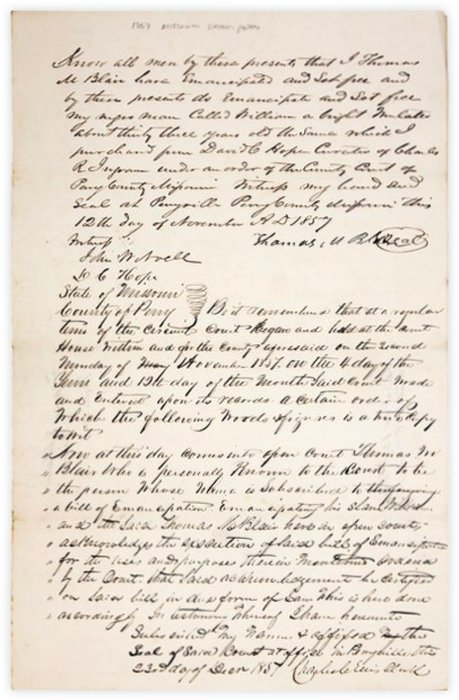 1857 Missouri
Know all men by these presents that I Thomas
M Blair have Emancipated and Set free and
by these presents do Emancipate and Set free
my negro man Called William a bright Mulatto
about thirty three years old the Same which I
purchased from David C Hope Curator of Charles
R Ingram under an order of the County Court of
Perry County Missouri Witness my hand and
Seal at Perryville Perry County Missouri this
12th day of November A D 1857
Witness Thomas M Seal
John W Noell
D C Hope
State of Missouri
County of Perry Be it remembered that at a regular
term of the Circuit Court Began and held at the Court
House Within and for the County aforesaid on the Second
Monday of November 1857. on the 4 day of the
Term and 12th day of the Month Said Court Made
and Entered upon its records a Certain order of
Which the following Words & figures is a true Copy
to wit
Now at this day comes into open Court Thomas M
Blair Who is personally Known to the Court to be
the person Whose Name is Subscribed to the foregoing
a bill of Emancipation Emancipating his Slave
and the Said Thomas M Blair here in open
acknowledges the execution of Said bill of Emancipation
for the Uses and purposes therein Mentioned
by the Court that Said acknowledgement be Certified
on Said bill in due form of Law This is here done
accordingly In testimony Thereof I have hereunto
Subscribed My Name & affixed the
Seal of Said Court at office in Perryville this
23rd day of 1857 Charles Ellis Clerk